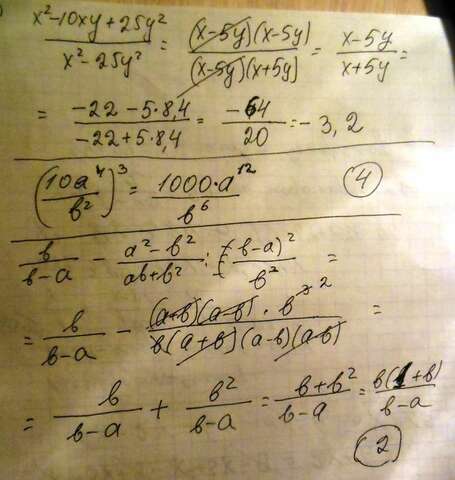 x²-10xy+25y² / x²-25y² = (x-5y)(x-5y) / (x-5y)(x+5y) = x-5y / x+5y =
= -22-5·8,4 / -22+5·8,4 = -64 / 20 = -3,2
(10a⁴ / b²)³ = 1000·a¹² / b⁶ (4)
b / b-a - a²-b² / ab+b² : (b-a)² / b² =
= b / b-a - (a+b)(a-b)·b² / b(a+b)(a-b)(a-b) =
= b / b-a + b² / b-a = b+b² / b-a = b(1+b) / b-a
(2)